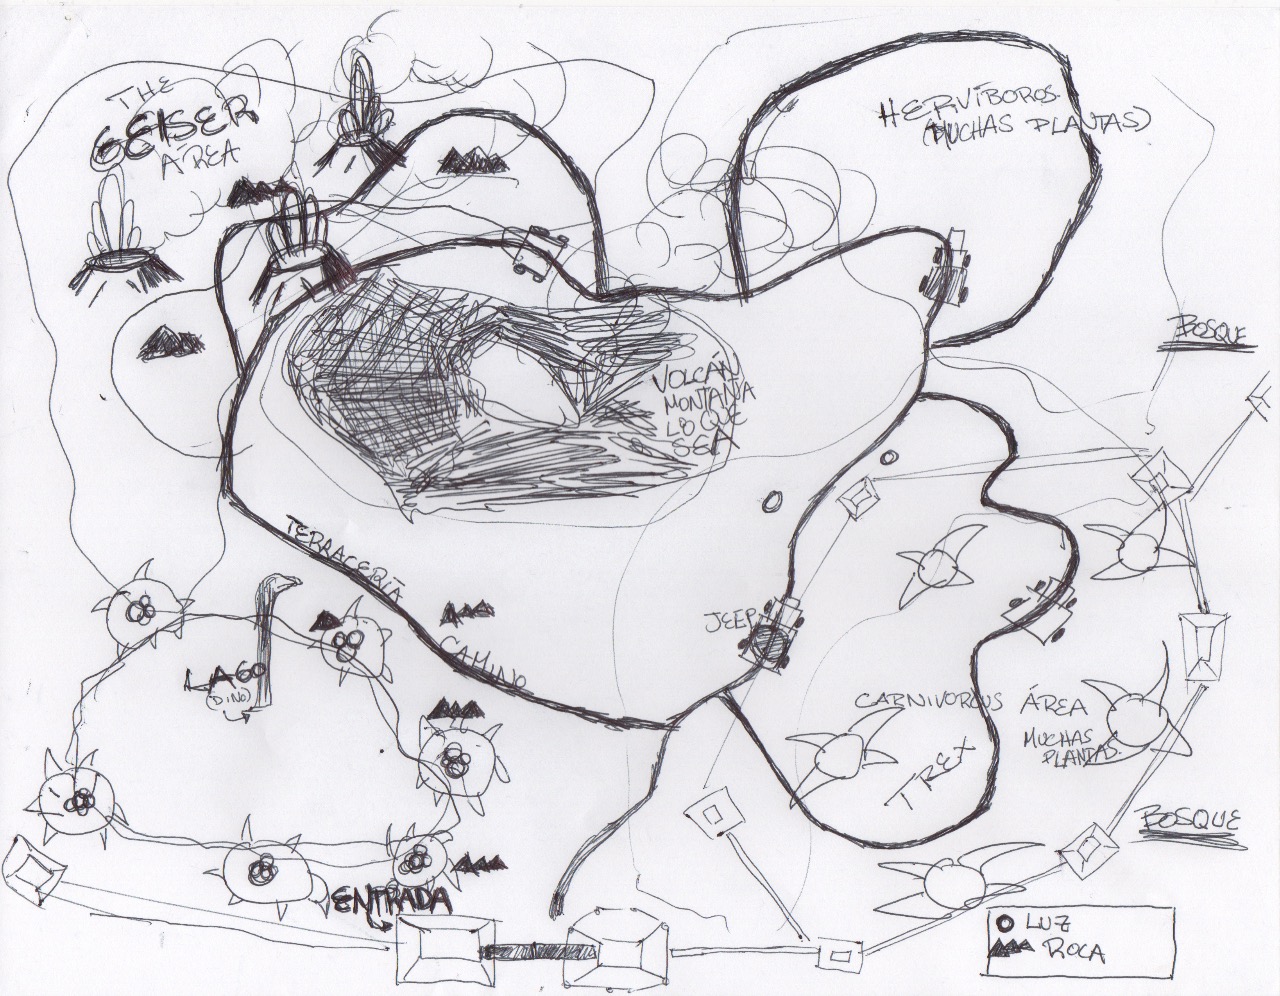 THE
GEISER
ÁREA
HERVÍBOROS
(MUCHAS PLANTAS)
BOSQUE
VOLCÁN
MONTAÑA
LO QUE
SEA
TERRACERÍA
CAMINO
JEEP
LAGO
(DINO)
CARNIVOROUS ÁREA
MUCHAS
PLANTAS.
TREX
BOSQUE
ENTRADA
LUZ
ROCA